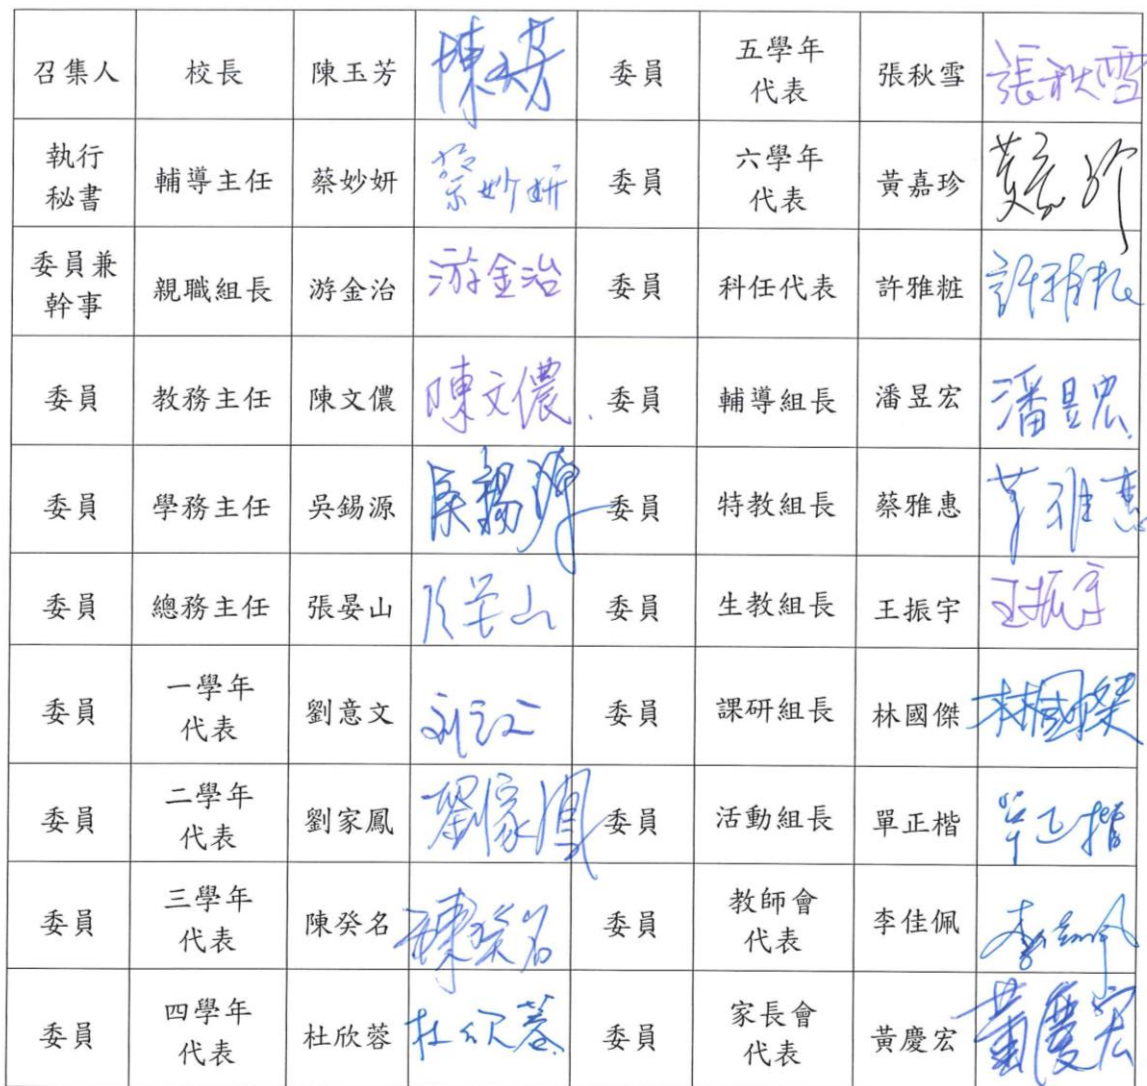 召集人 校長 陳玉芳 陳玉芳 委員 五學年代表 張秋雪 張秋雪
執行秘書 輔導主任 蔡妙妍 蔡妙妍 委員 六學年代表 黃嘉珍 黃嘉珍
委員兼幹事 親職組長 游金治 游金治 委員 科任代表 許雅粧 許雅粧
委員 教務主任 陳文儂 陳文儂. 委員 輔導組長 潘昱宏 潘昱宏
委員 學務主任 吳錫源 吳錫源 委員 特教組長 蔡雅惠 蔡雅惠
委員 總務主任 張晏山 張晏山 委員 生教組長 王振宇 王振宇
委員 一學年代表 劉意文 委員 課研組長 林國傑 林國傑
委員 二學年代表 劉家鳳 劉家鳳 委員 活動組長 單正楷 單正楷
委員 三學年代表 陳癸名 陳癸名 委員 教師會代表 李佳佩 李佳佩
委員 四學年代表 杜欣蓉 杜欣蓉 委員 家長會代表 黃慶宏 黃慶宏